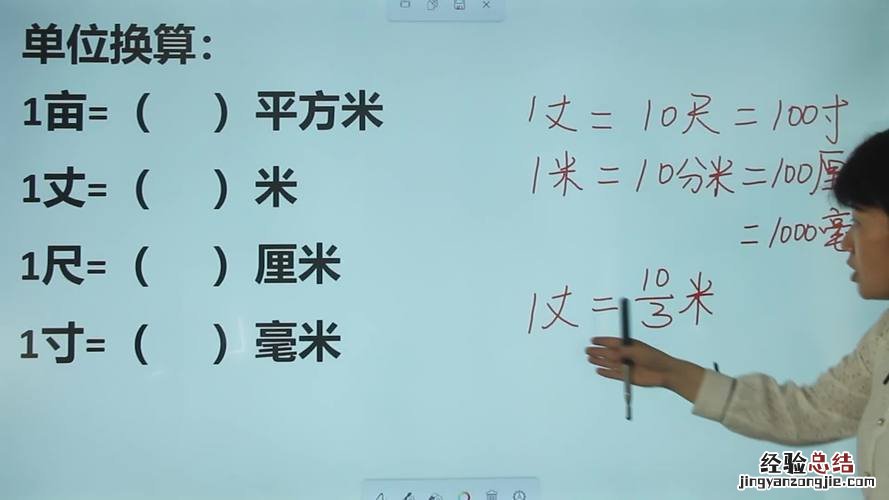 单位换算：
1亩=（　）平方米
1丈=（　）米
1尺=（　）厘米
1寸=（　）毫米
1丈 = 10尺 = 100寸
1米 = 10分米 = 100厘
= 1000毫
1丈 = 10/3 米
经验总结
jingyanzongjie.com